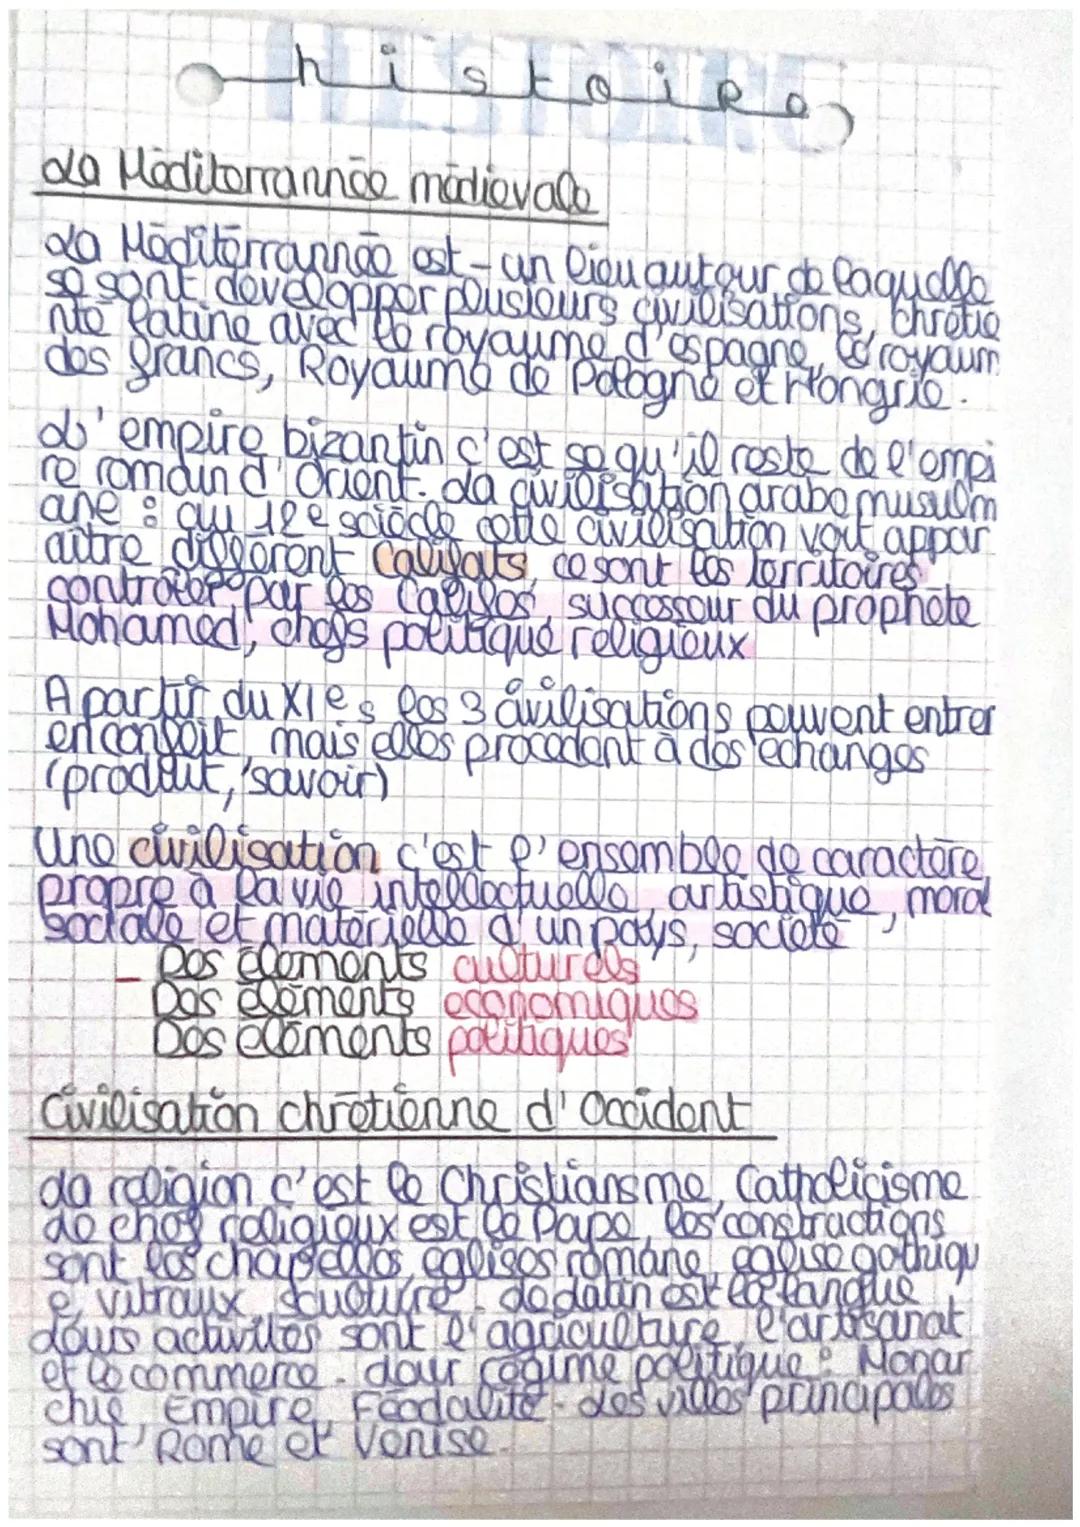 histoire
La Méditerrannée médievale
La Méditerrannée est un lieu autour de laquelle
se sont developper plusieurs civilisations, chrétie
nté latine avec le royaume d'espagne, le royaum
des francs, Royaume de Pologne et Hongrie.
L'empire bizantin c'est se qu'il reste de l'empi
re romain d'Orient. La civilisation arabo musulm
ane : au 12e sciècle cette civilisation voit appar
aitre différent Califats, ce sont les territoires
controler par les Califes successeur du prophète
Mohamed, chefs politique religieux
A partir du XIe s les 3 civilisations peuvent entrer
en conflit, mais elles procedent à des echanges
(produit, savoir)
Une civilisation c'est l'ensemble de caractère
propre à la vie intellectuelle artistique, moral
sociale et matérielle d'un pays, société
- Des élements culturels
Des éléments economiques
Des eléments politiques
Civilisation chrétienne d'Occident
La religion c'est le Christiansme, Catholicisme
Le chef religieux est le Pape, les constractions
sont les chapelles, eglises romane, eglise gothiqu
e, vitraux, . Le Latin est la langue
Leurs activités sont l'agriculture, l'artisanat
et le commerce. Leur régime politique : Monar
chie, Empire, Féodalité. Les villes principales
sont Rome et Venise.